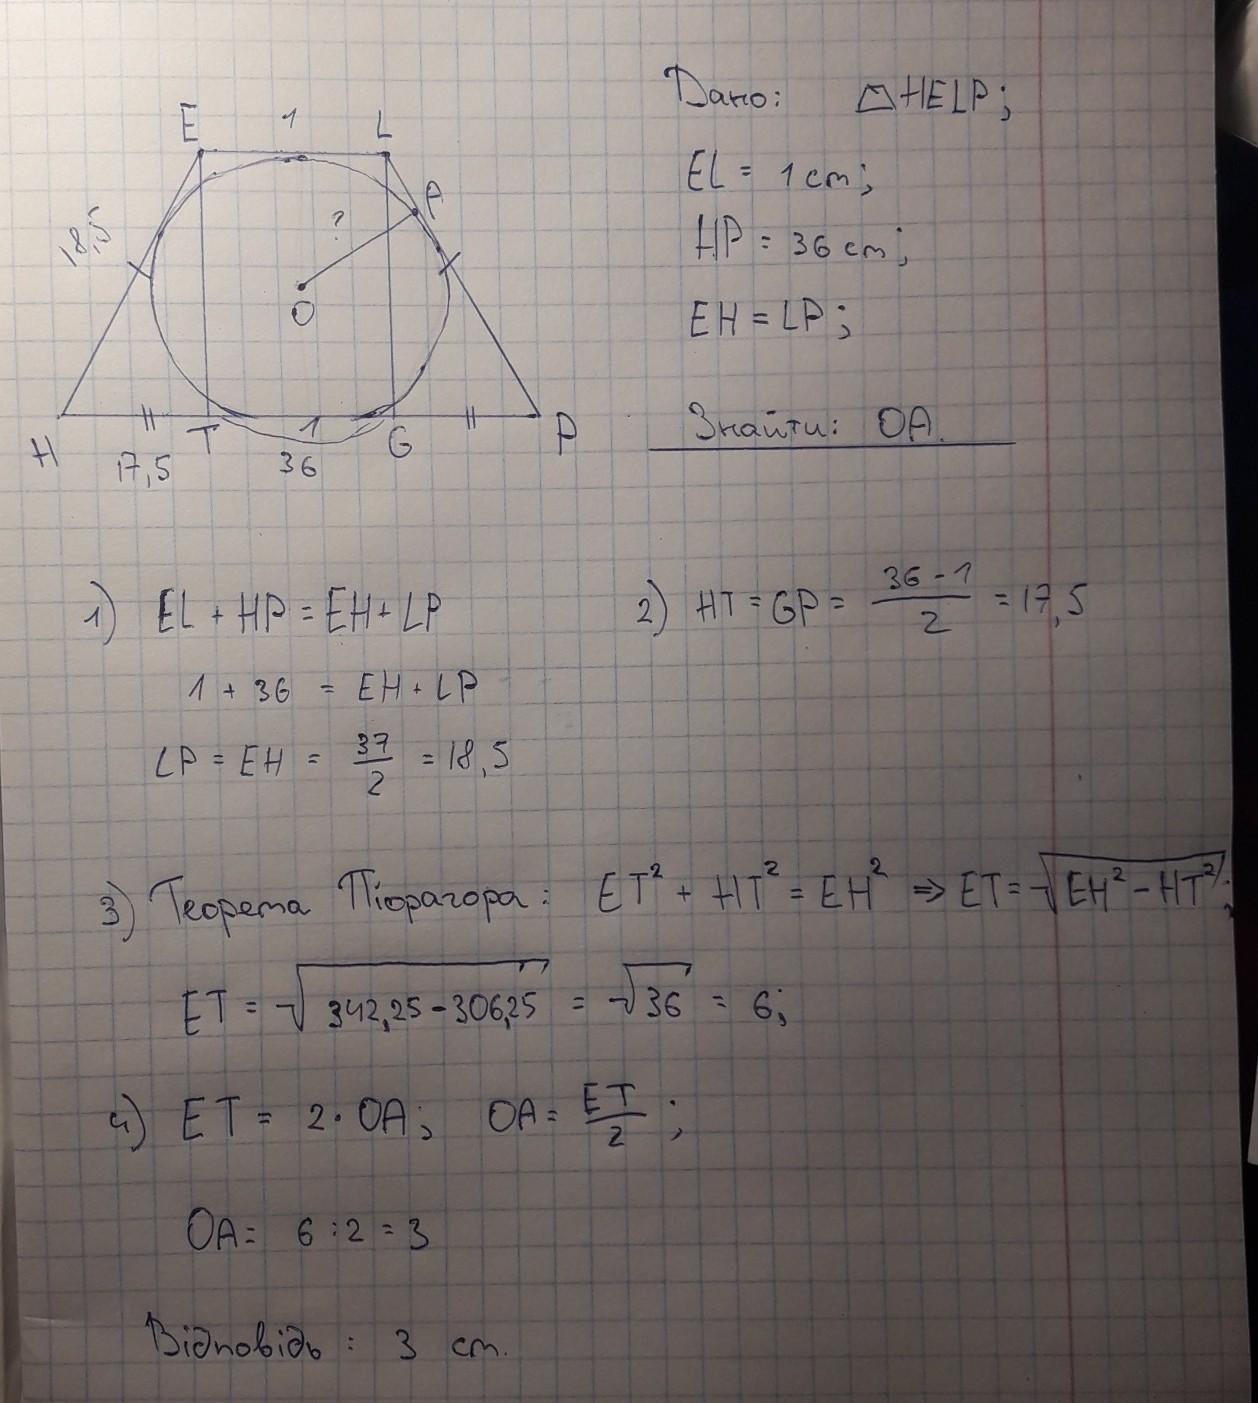 E 1 L
A
18,5
?
O
H T 1 G P
17,5 36
Дано: HELP;
EL = 1 cm;
HP = 36 cm;
EH = LP;
Знайти: OA.
1) EL + HP = EH + LP
1 + 36 = EH + LP
LP = EH = 37/2 = 18,5
2) HT = GP = (36 - 1)/2 = 17,5
3) Теорема Піфагора: ET² + HT² = EH² => ET = √(EH² - HT²);
ET = √(342,25 - 306,25) = √36 = 6;
4) ET = 2 · OA; OA = ET/2;
OA = 6 : 2 = 3
Відповідь: 3 cm.